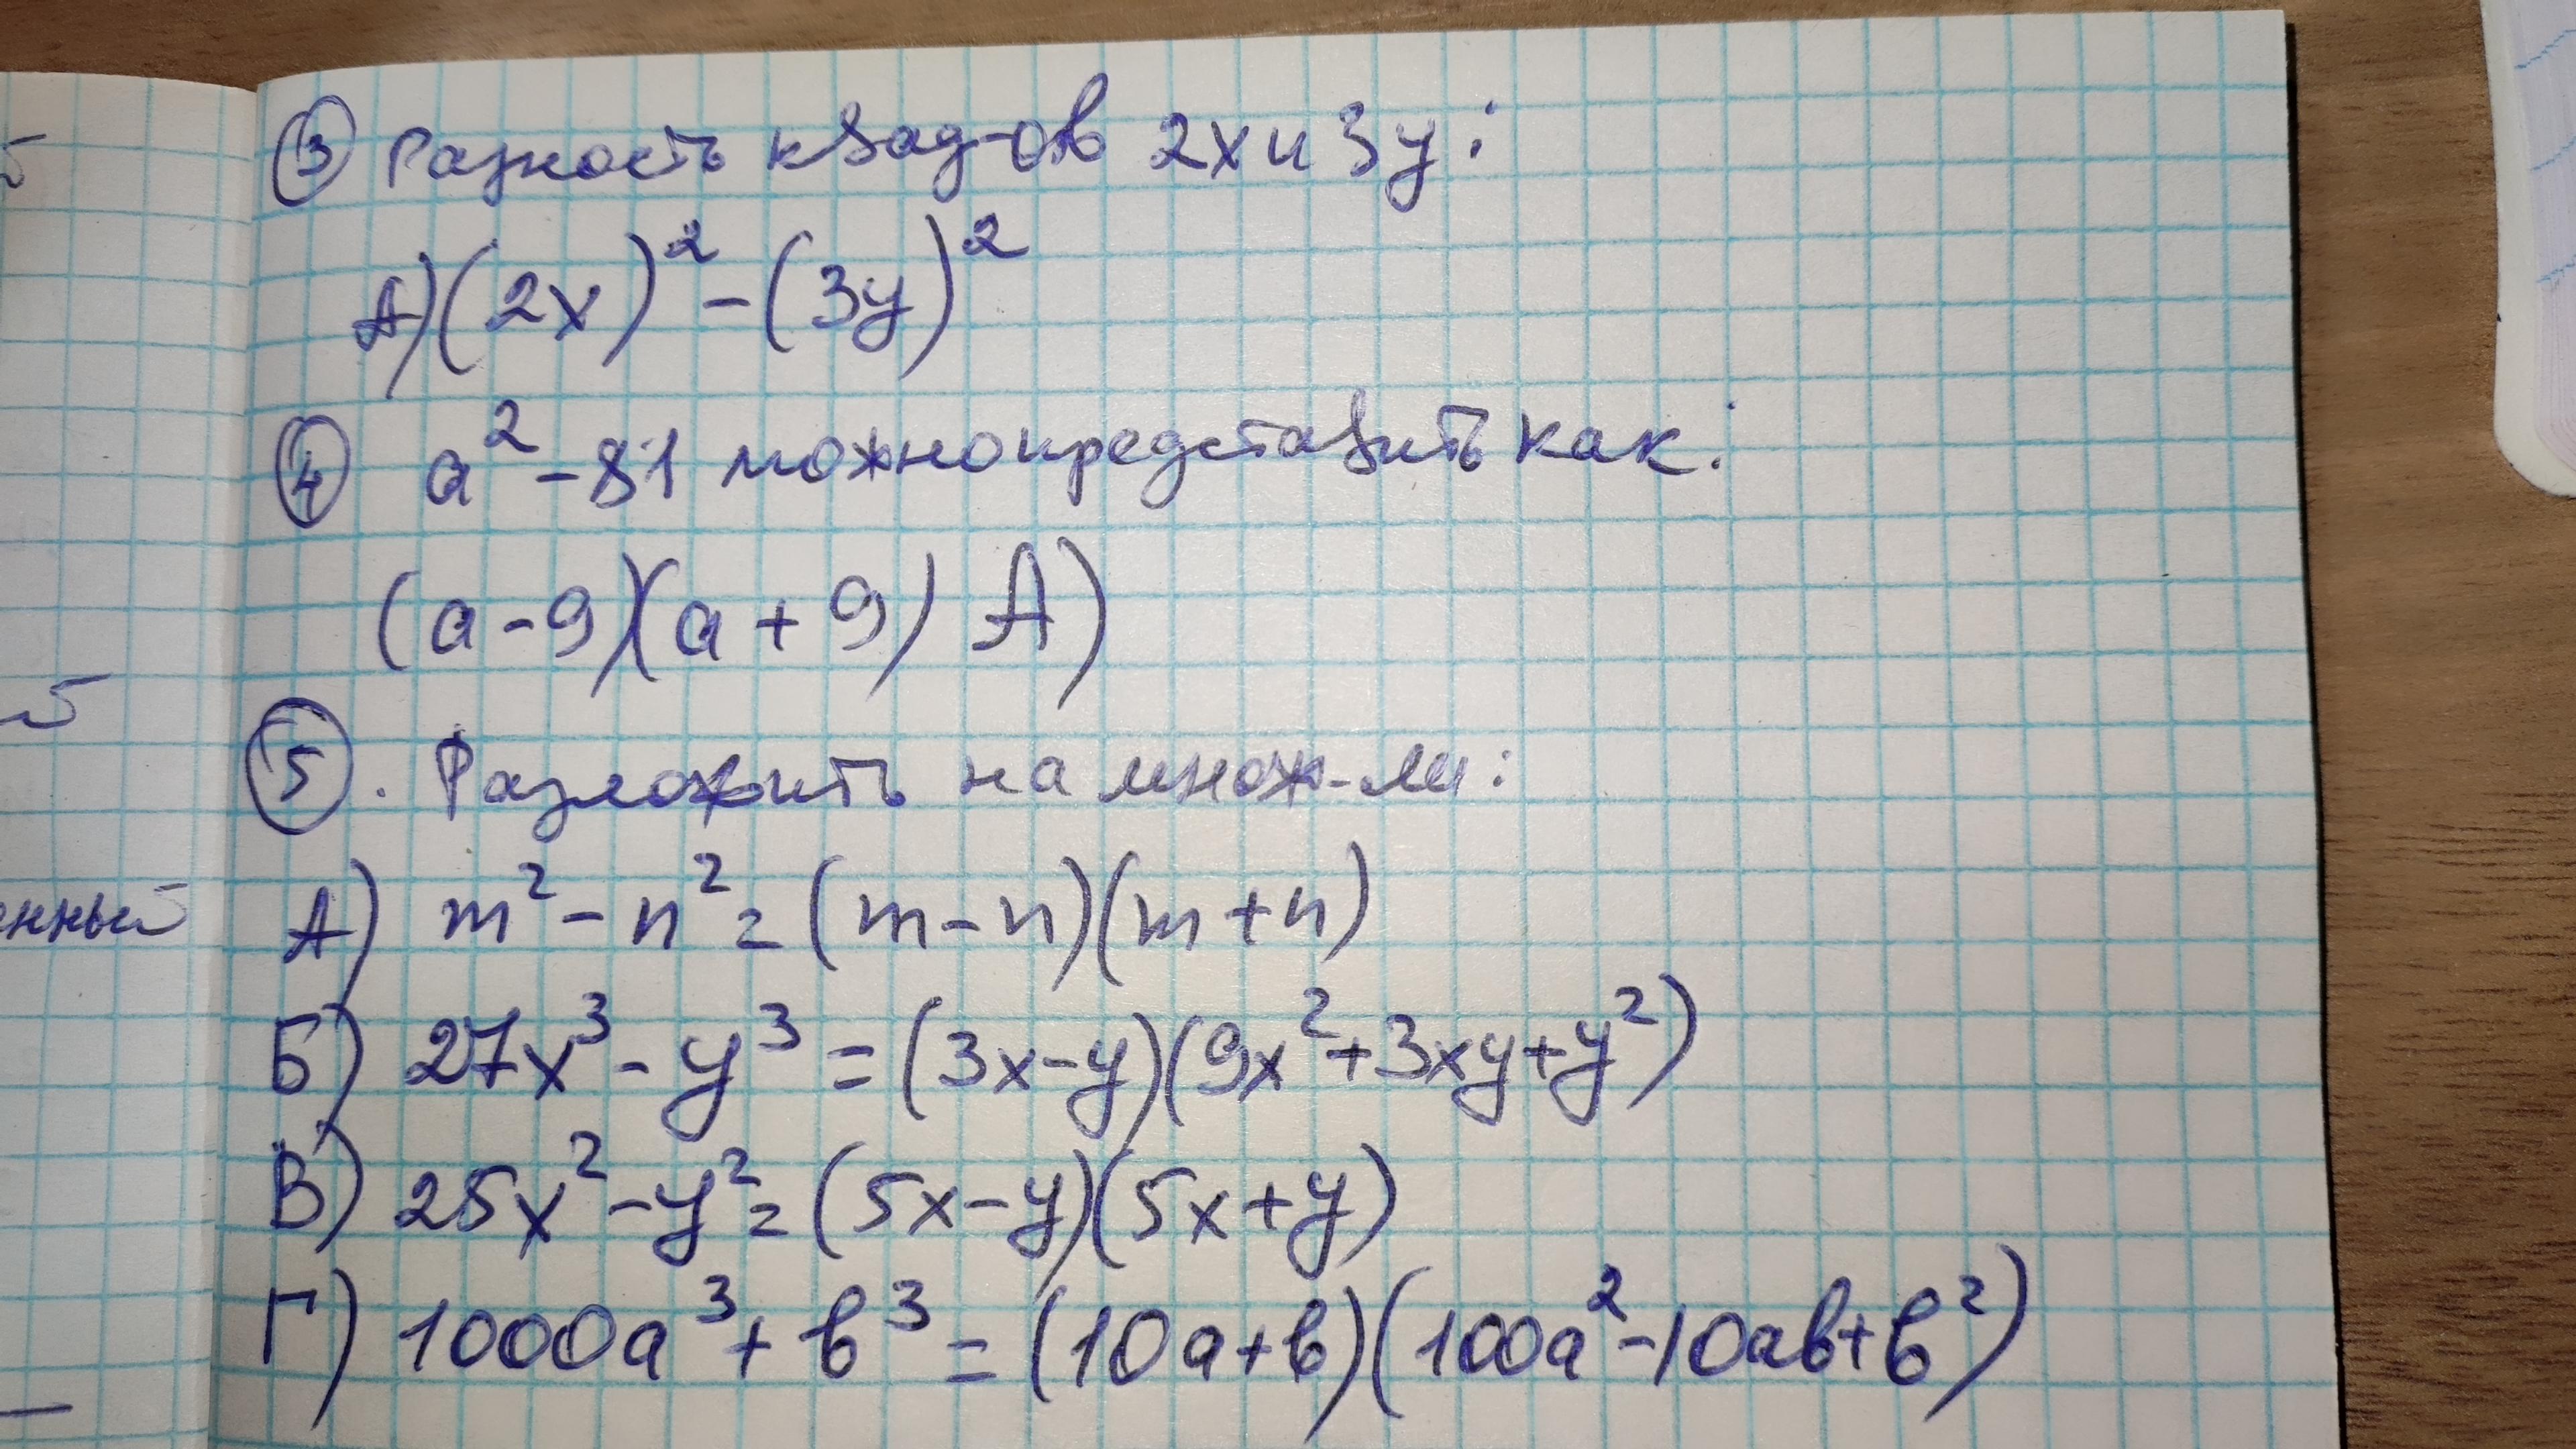 ③ Разность квад-ов 2x и 3y:
А) (2x)² - (3y)²
④ a² - 81 можно представить как:
(a - 9)(a + 9) А)
⑤. Разложить на множ-ли:
А) m² - n² = (m - n)(m + n)
Б) 27x³ - y³ = (3x - y)(9x² + 3xy + y²)
енный
В) 25x² - y² = (5x - y)(5x + y)
Г) 1000a³ + b³ = (10a + b)(100a² - 10ab + b²)